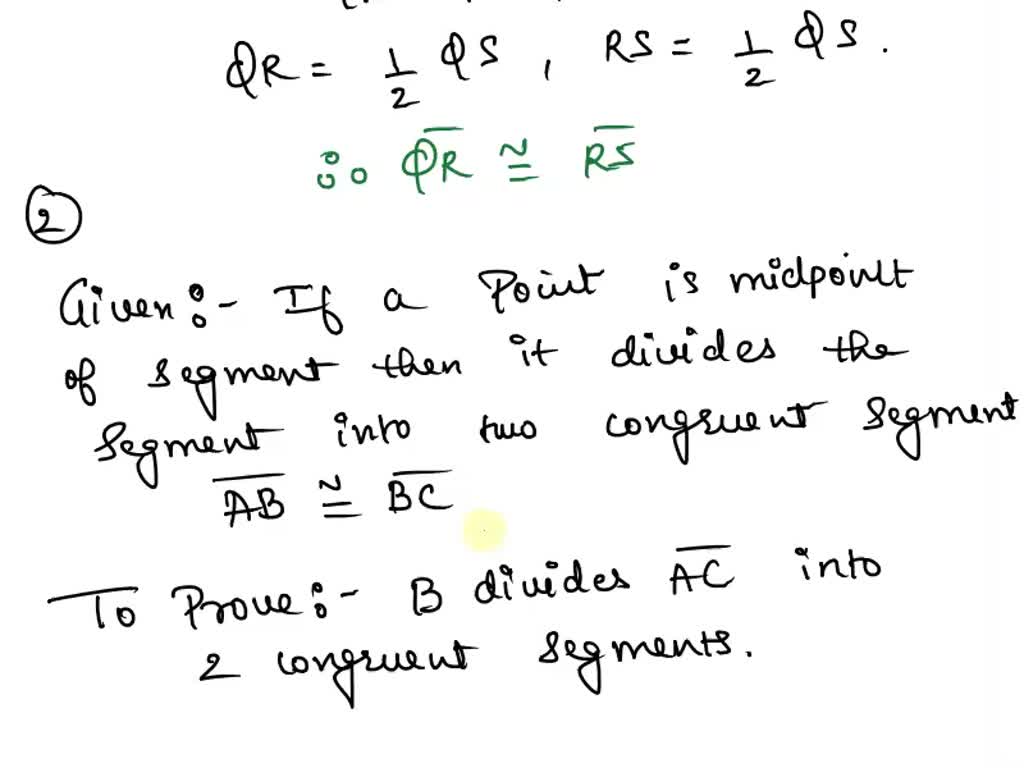 QR = 1/2 QS , RS = 1/2 QS .
∴ Q̅R̅ ≅ R̅S̅
2
Given :- If a Point is midpoint
of segment then it divides the
segment into two congruent segment
A̅B̅ ≅ B̅C̅
To Prove :- B divides A̅C̅ into
2 congruent segments.